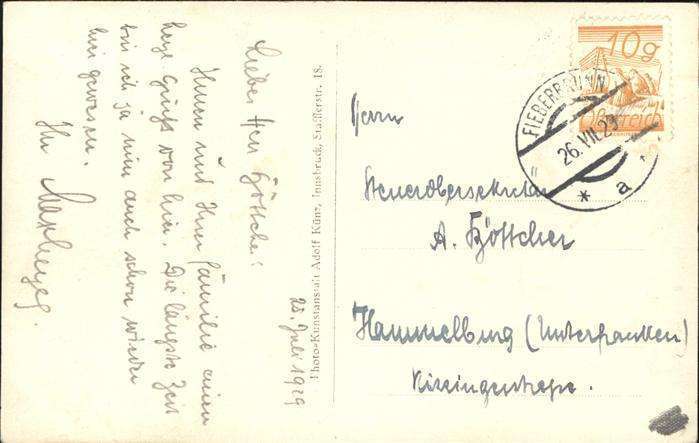 25. Juli 1929
Lieber Herr Böttcher!
Ihnen und Ihrer Familie einen
herzl. Gruß von hier. Die längste Zeit
bin ich ja nun auch schon wieder
hier gewesen.
Ihr
Photo-Kunstanstalt Adolf Künz, Innsbruck, Stafflerstr. 18.
10g
Österreich
FIEBERBRUNN
26. VII. 29
* a
Herrn
Steuerobersekretär
A. Böttcher
Hammelburg (Unterfranken)
Kissingerstraße.